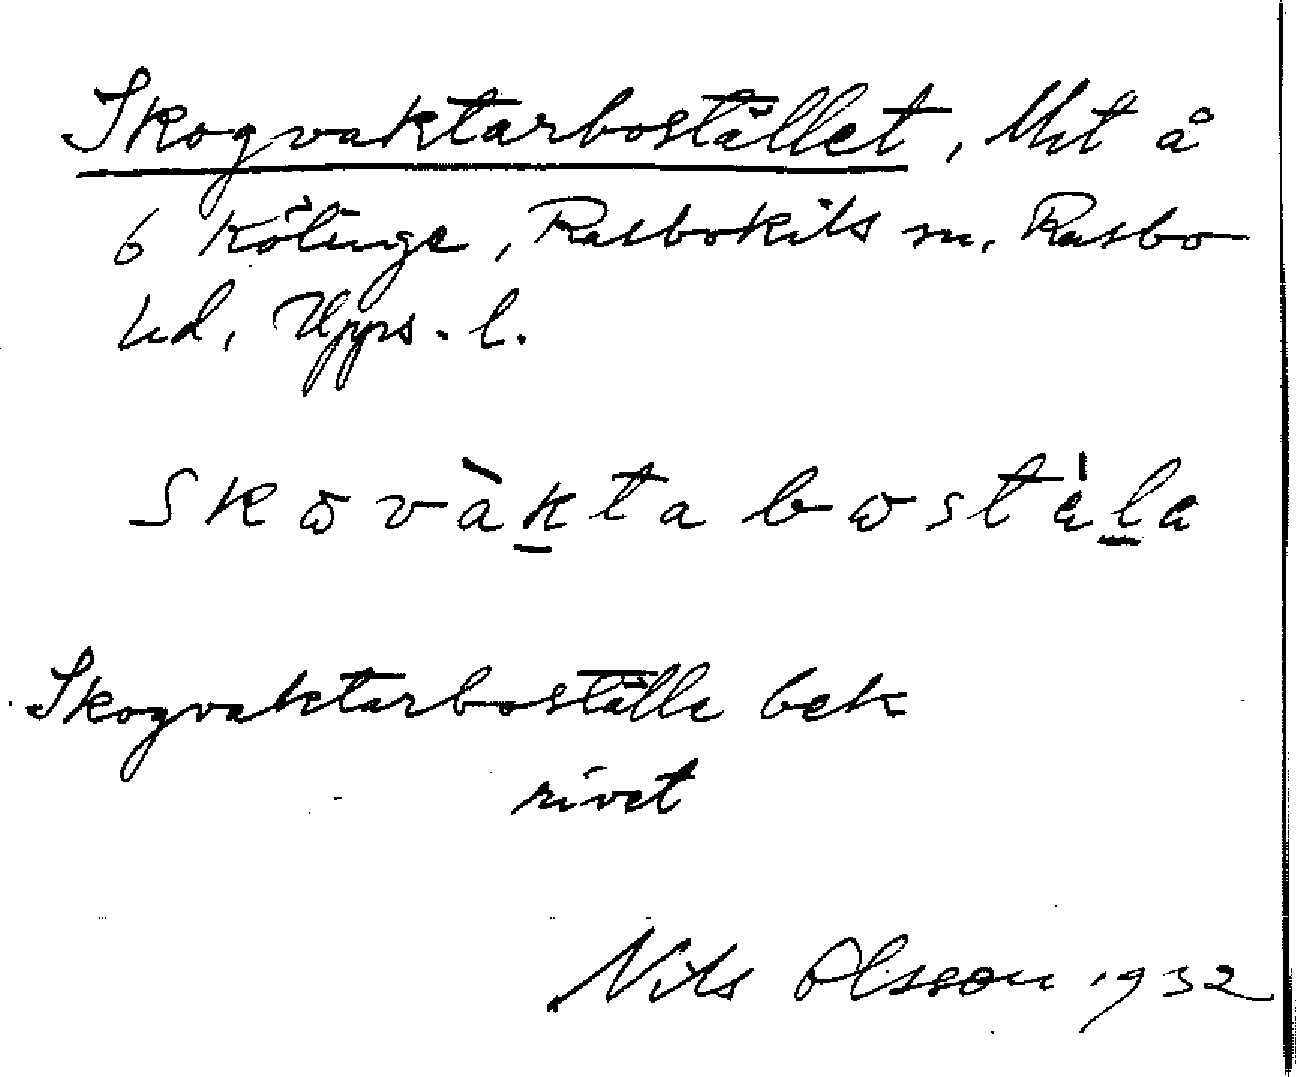 Skogvaktarbostället, Ut å
6 Kölinge, Rasbokils sn, Rasbo
hd, Upps. l.
skωvàktabωstäla
Skogvaktarboställe bek
rivet
Nils Olsson 1932